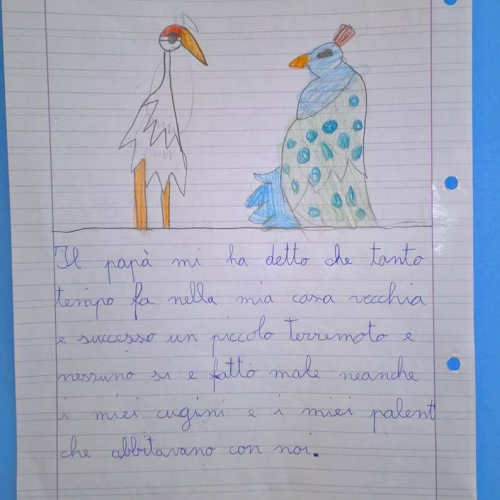 Il papà mi ha detto che tanto
tempo fa nella mia casa vecchia
e successo un piccolo terremoto e
nessuno si e fatto male neanche
i miei cugini e i miei palent
che abbitavano con noi.